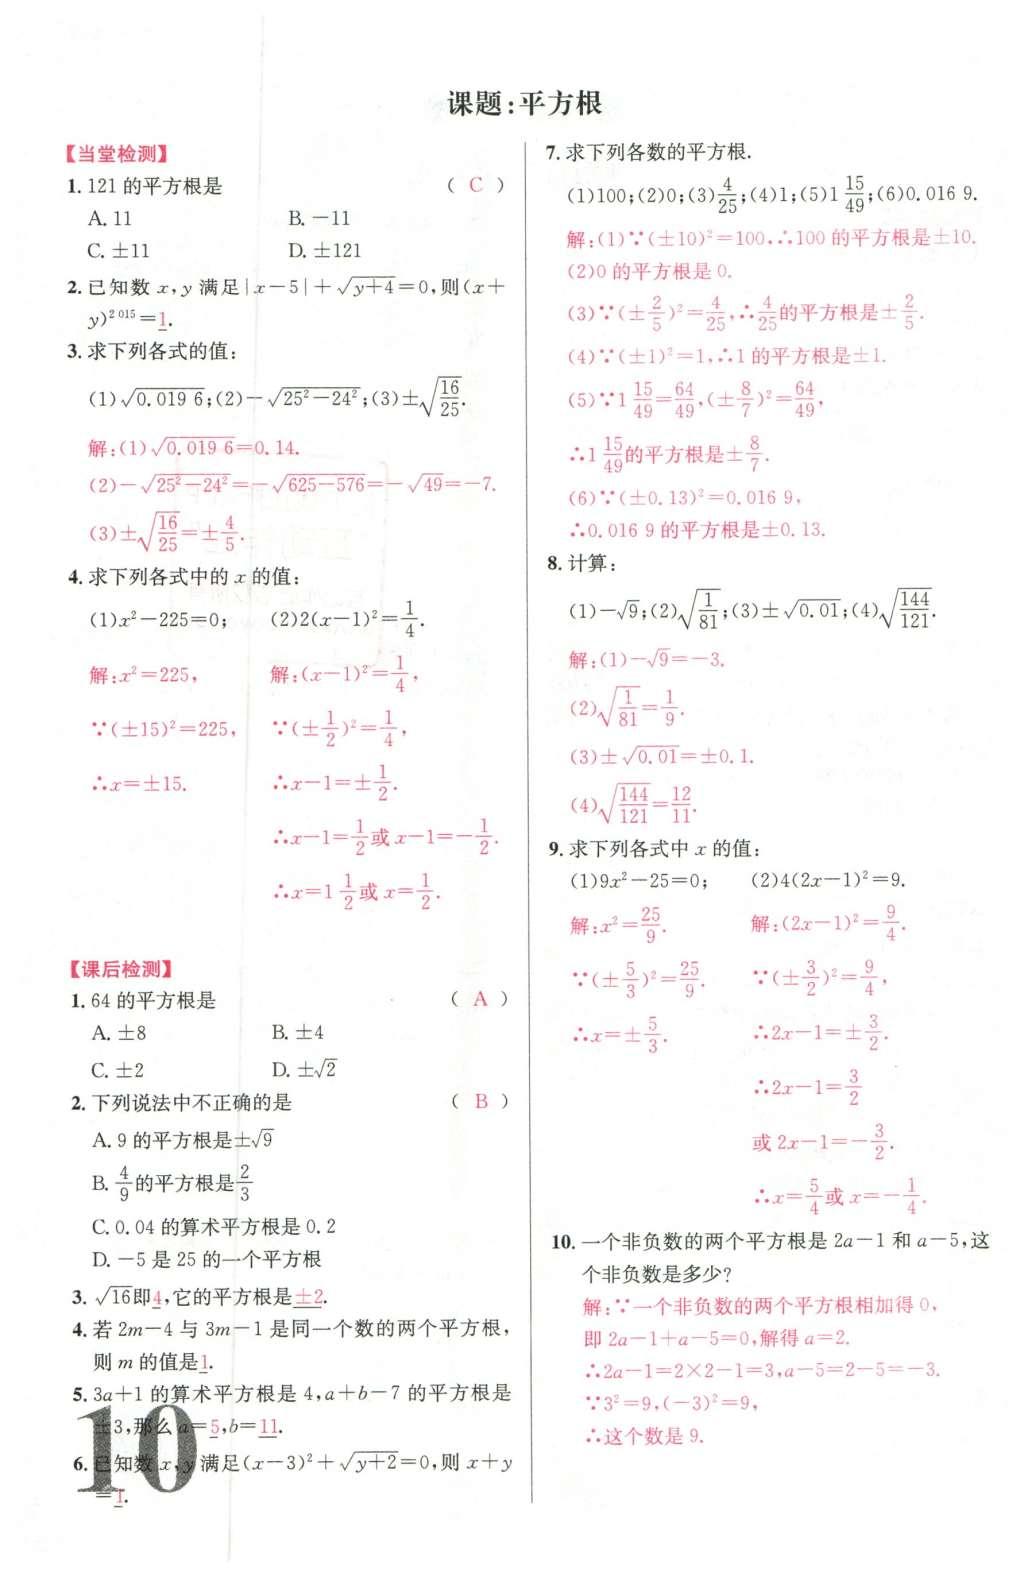 课题:平方根
【当堂检测】
1. 121 的平方根是 ( C )
A. 11 B. －11
C. ±11 D. ±121
2. 已知数 x,y 满足|x－5|＋√(y＋4)＝0,则(x＋
y)^2 015＝1.
3. 求下列各式的值:
(1)√0.019 6;(2)－√(25²－24²);(3)±√(16/25).
解:(1)√0.019 6＝0.14.
(2)－√(25²－24²)＝－√(625－576)＝－√49＝－7.
(3)±√(16/25)＝±4/5.
4. 求下列各式中的 x 的值:
(1)x²－225＝0; (2)2(x－1)²＝1/4.
解:x²＝225, 解:(x－1)²＝1/4,
∵(±15)²＝225, ∵(±1/2)²＝1/4,
∴x＝±15. ∴x－1＝±1/2.
∴x－1＝1/2或 x－1＝－1/2.
∴x＝1 1/2或 x＝1/2.
【课后检测】
1. 64 的平方根是 ( A )
A. ±8 B. ±4
C. ±2 D. ±√2
2. 下列说法中不正确的是 ( B )
A. 9 的平方根是±√9
B. 4/9的平方根是2/3
C. 0.04 的算术平方根是 0.2
D. －5 是 25 的一个平方根
3. √16即4,它的平方根是±2.
4. 若 2m－4 与 3m－1 是同一个数的两个平方根,
则 m 的值是1.
5. 3a＋1 的算术平方根是 4,a＋b－7 的平方根是
±3,那么 a＝5,b＝11.
6. 已知数 x,y 满足(x－3)²＋√(y＋2)＝0,则 x＋y
＝1.
10
7. 求下列各数的平方根.
(1)100;(2)0;(3)4/25;(4)1;(5)1 15/49;(6)0.016 9.
解:(1)∵(±10)²＝100,∴100 的平方根是±10.
(2)0 的平方根是 0.
(3)∵(±2/5)²＝4/25,∴4/25的平方根是±2/5.
(4)∵(±1)²＝1,∴1 的平方根是±1.
(5)∵1 15/49＝64/49,(±8/7)²＝64/49,
∴1 15/49的平方根是±8/7.
(6)∵(±0.13)²＝0.016 9,
∴0.016 9 的平方根是±0.13.
8. 计算:
(1)－√9;(2)√(1/81);(3)±√0.01;(4)√(144/121).
解:(1)－√9＝－3.
(2)√(1/81)＝1/9.
(3)±√0.01＝±0.1.
(4)√(144/121)＝12/11.
9. 求下列各式中 x 的值:
(1)9x²－25＝0; (2)4(2x－1)²＝9.
解:x²＝25/9. 解:(2x－1)²＝9/4.
∵(±5/3)²＝25/9. ∵(±3/2)²＝9/4,
∴x＝±5/3. ∴2x－1＝±3/2.
∴2x－1＝3/2
或 2x－1＝－3/2.
∴x＝5/4或 x＝－1/4.
10. 一个非负数的两个平方根是 2a－1 和 a－5,这
个非负数是多少?
解:∵一个非负数的两个平方根相加得 0,
即 2a－1＋a－5＝0,解得 a＝2.
∴2a－1＝2×2－1＝3,a－5＝2－5＝－3.
∵3²＝9,(－3)²＝9,
∴这个数是 9.